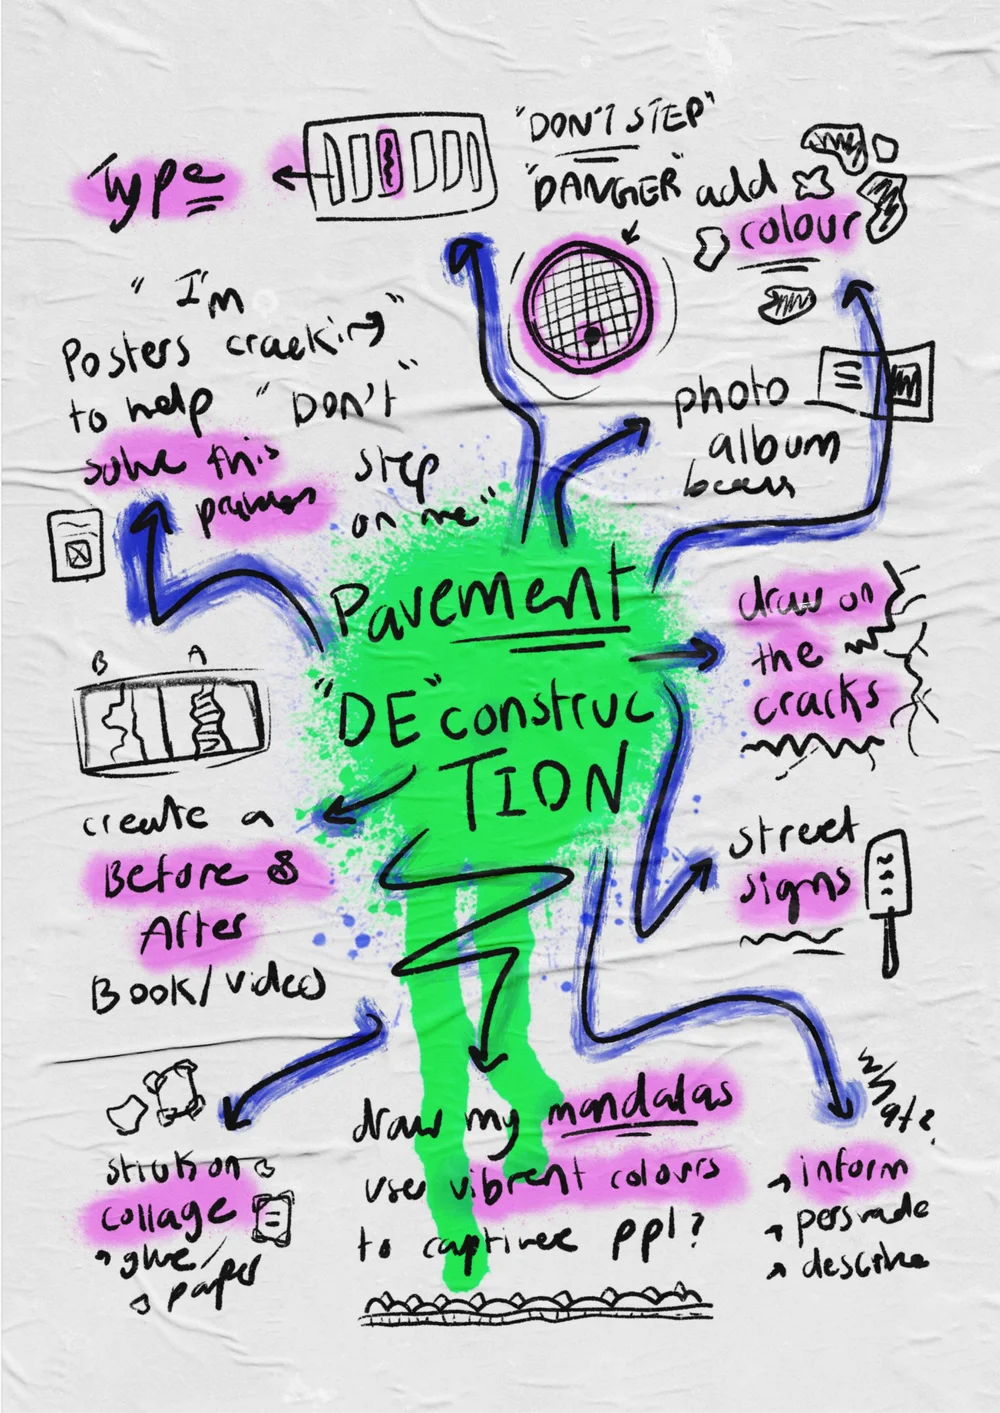 Type
"DON'T STEP"
"DANGER"
add
colour
"I'm
cracking"
Posters
to help
solve this
"DON'T"
step
on me"
photo
album
Pavement
"DE"construc
TION
draw on
the
cracks
B A
create a
Before &
After
Book/video
street
signs
stick on
collage
glue/
paper
draw my mandalas
use vibrent colours
to ppl?
inform
persuade
describe